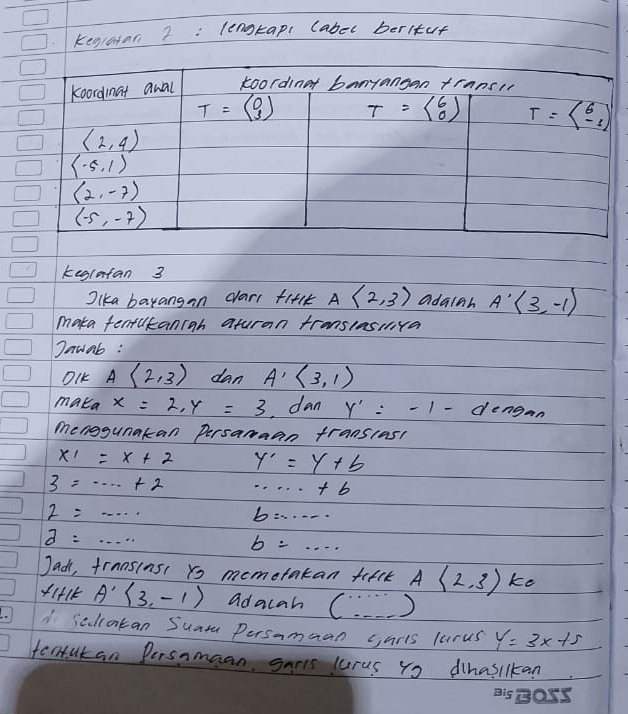 Kegiatan 2 : lengkapi label berikut
Koordinat awal
Koordinat bayangan transl
T = (0 3) T = (6 0) T = (6 -3)
(2,4)
(-5,1)
(2,-7)
(-5,-7)
Kegiatan 3
Jika bayangan dari titik A (2,3) adalah A'(3,-1)
maka tentukanlah aturan translasinya
Jawab :
Dik A (2,3) dan A' (3,1)
maka x = 2, y = 3, dan y' = -1 - dengan
menggunakan Persamaan translasi
x' = x + 2 y' = y + b
3 = .... + 2 ..... + b
2 = ..... b = ......
2 = ..... b = ....
Jadi, translasi yg memetakan titik A (2,3) ke
titik A' (3,-1) adalah (......)
Sediakan Suatu Persamaan garis lurus y = 3x + 5
tentukan Persamaan garis lurus yg dihasilkan
Big BOSS